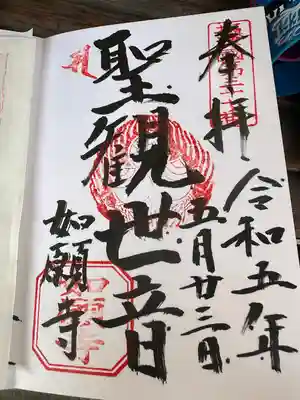 奉拝
令和五年
五月廿三日
聖観世音
如願寺